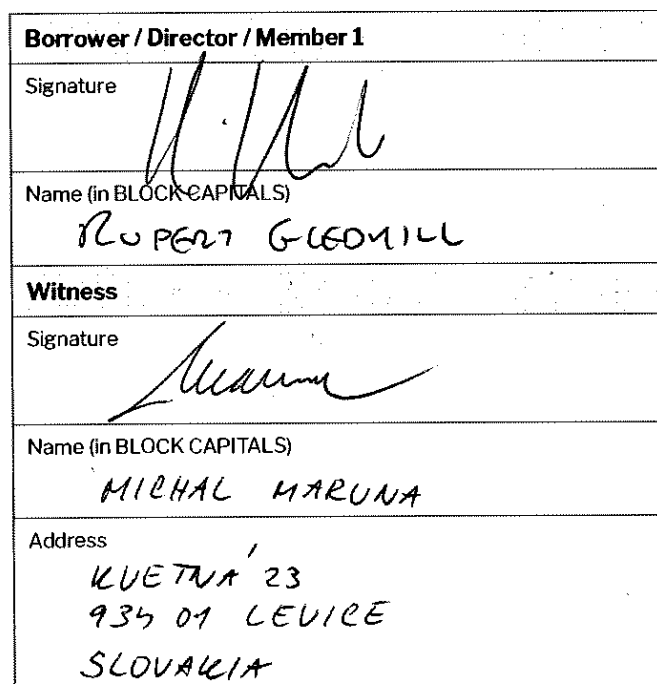 Borrower / Director / Member 1
Signature
Name (in BLOCK CAPITALS)
RUPERT GLEDHILL
Witness
Signature
Name (in BLOCK CAPITALS)
MICHAL MARUNA
Address
KVETNÁ 23
934 01 LEVICE
SLOVAKIA